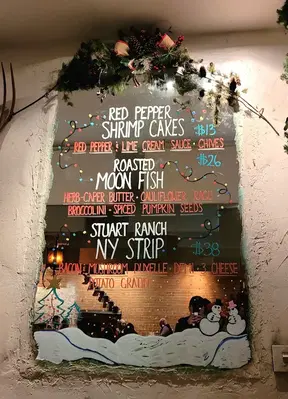 RED PEPPER
SHRIMP CAKES $13
RED PEPPER + LIME CREAM SAUCE - CHIVES
ROASTED $26
MOON FISH
HERB-CAPER BUTTER - CAULIFLOWER
BROCCOLINI - SPICED PUMPKIN SEEDS
STUART RANCH
NY STRIP $38
BACON + MUSHROOM DUXELLE - DEMI - 3 CHEESE
POTATO GRATIN